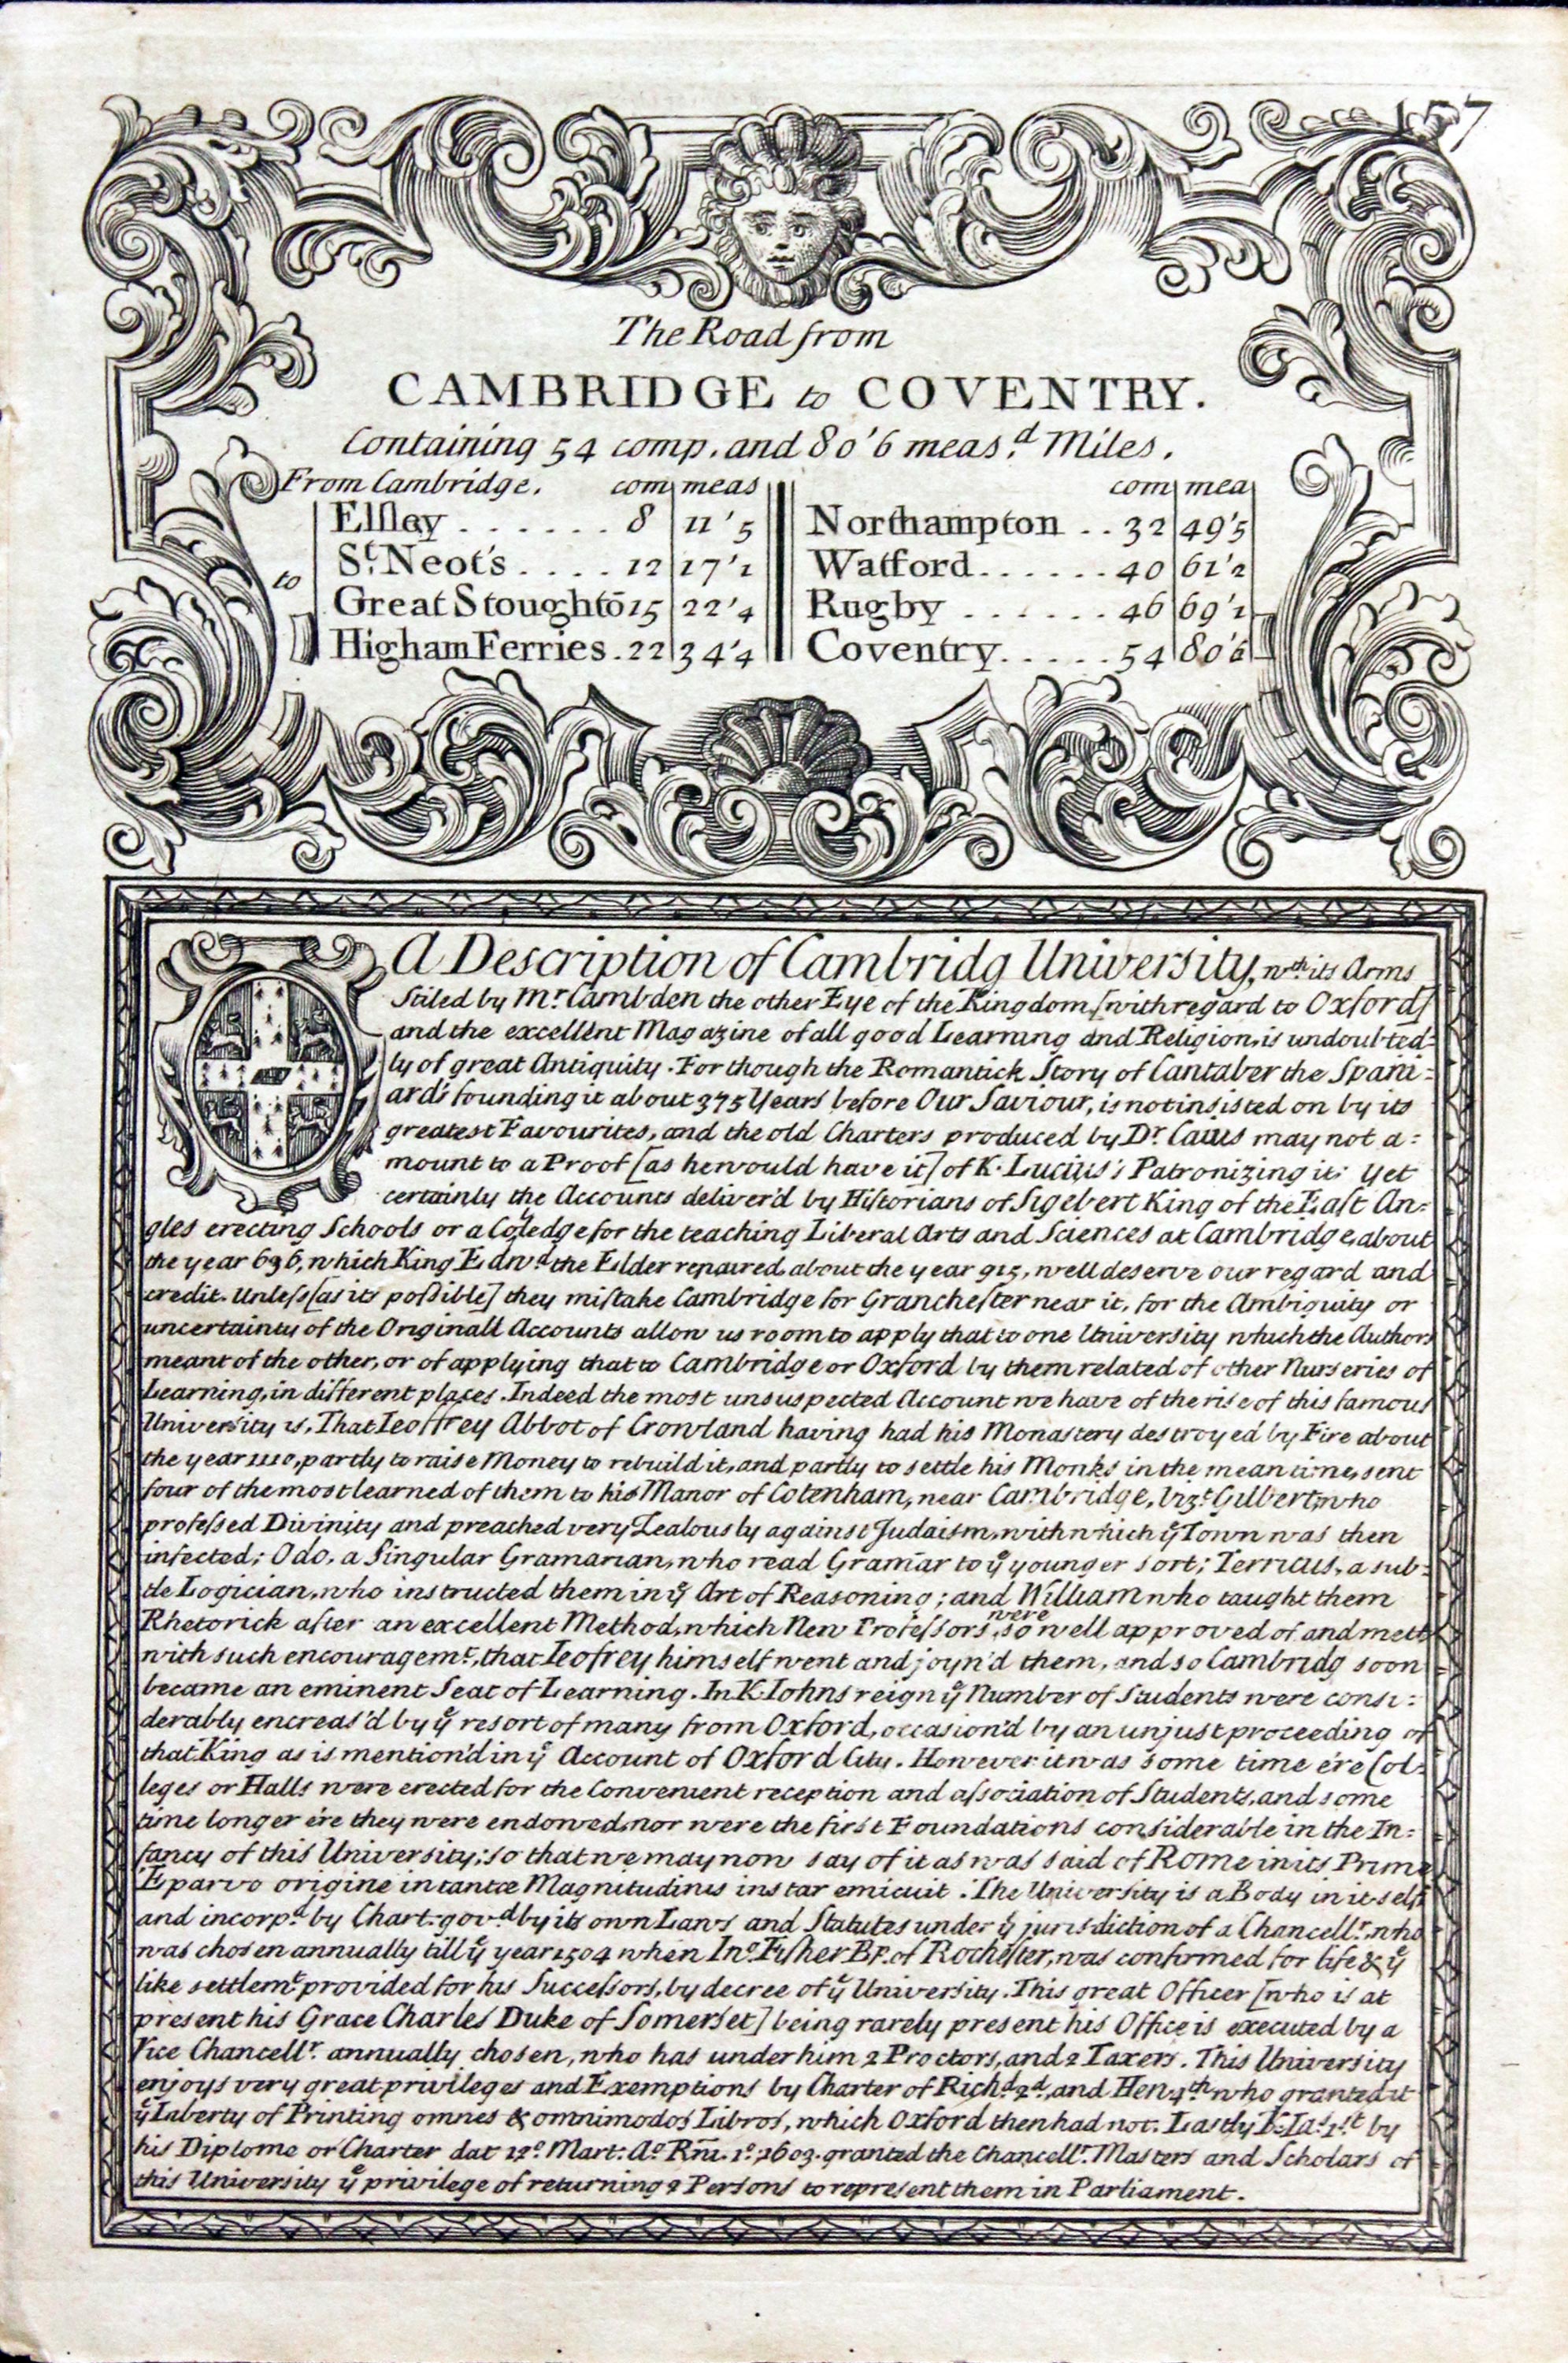 157
The Road from
CAMBRIDGE to COVENTRY.
Containing 54 comp. and 80'6 meas.d Miles.
From Cambridge. com meas com mea
Elſley . . . . . . . 8 11'5 Northampton . . 32 49'5
St. Neot's . . . . 12 17'1 Watford . . . . . . 40 61'2
to
Great Stoughtō 15 22'4 Rugby . . . . . . 46 69'1
Higham Ferries . 22 34'4 Coventry . . . . . 54 80'6
A Description of Cambridg University, wth. its Arms
Stiled by Mr. Cambden the other Eye of the Kingdom, [with regard to Oxford]
and the excellent Magazine of all good Learning and Religion, is undoubted=
ly of great Antiquity. For though the Romantick Story of Cantaber the Spani=
ard's founding it about 375 Years before Our Saviour, is not insisted on by its
greatest Favourites, and the old Charters produced by Dr. Caius may not a=
mount to a Proof [as he would have it] of K. Lucius's Patronizing it: Yet
certainly the Accounts deliver'd by Hiſtorians of Sigebert King of the Eaſt An=
gles erecting Schools or a Colledge for the teaching Liberal Arts and Sciences at Cambridge, about
the year 636, which King Edwd. the Elder repaired, about the year 915, well deserve our regard and
credit. Unleſs [as its poſsible] they miſtake Cambridge for Grancheſter near it, for the Ambiguity or
uncertainty of the Originall Accounts allow us room to apply that to one University which the Authors
meant of the other, or of applying that to Cambridge or Oxford by them related of other Nurseries of
Learning, in different places. Indeed the most unsuspected Account we have of the rise of this famous
University is, That Ieoffrey Abbot of Crowland having had his Monastery destroyed by Fire about
the year 1110, partly to raise Money to rebuild it, and partly to settle his Monks in the mean time, sent
four of the most learned of them to his Manor of Cotenham, near Cambridge, Vizt. Gilbert, who
profeſsed Divinity and preached very Zealously against Judaism, with which ye Town was then
infected; Odo, a Singular Gramarian, who read Gram̄ar to ye younger sort; Terricus, a sub=
tle Logician, who instructed them in ye Art of Reasoning; and William who taught them
Rhetorick after an excellent Method, which New Profeſsors were so well approved of and mett
with such encouragemt., that Ieofrey himself went and joyn'd them, and so Cambridg soon
became an eminent Seat of Learning. In K. Iohns reign ye Number of Students were consi=
derably encreas'd by ye resort of many from Oxford, occasion'd by an unjust proceeding of
that King as is mention'd in ye Account of Oxford City. However it was some time e're Col=
leges or Halls were erected for the Convenient reception and aſsociation of Students, and some
time longer e're they were endowed, nor were the first Foundations considerable in the In=
fancy of this University; so that we may now say of it as was said of Rome in its Prime
E parvo origine in tantæ Magnitudinis instar emicuit. The University is a Body in it self
and incorpd. by Chart. govd. by its own Laws and Statutes under ye jurisdiction of a Chancellr. who
was chosen annually till ye year 1504 when Ino. Fiſher Bp. of Rocheſter, was confirmed for life & ye
like settlemt. provided for his Succeſsors, by decree of ye University. This great Officer [who is at
present his Grace Charles Duke of Somerset] being rarely present his Office is executed by a
Vice Chancellr. annually chosen, who has under him 2 Proctors, and 2 Taxers. This University
enjoys very great privileges and Exemptions by Charter of Richd. 2d. and Hen. 4th. who granted it
ye Liberty of Printing omnes & omnimodos Libros, which Oxford then had not. Lastly K. Ias. 1st. by
his Diplome or Charter dat 12o. Mart: Ao. Rñi. 1o. 1603. granted the Chancellr. Masters and Scholars of
this University ye privilege of returning 2 Persons to represent them in Parliament.